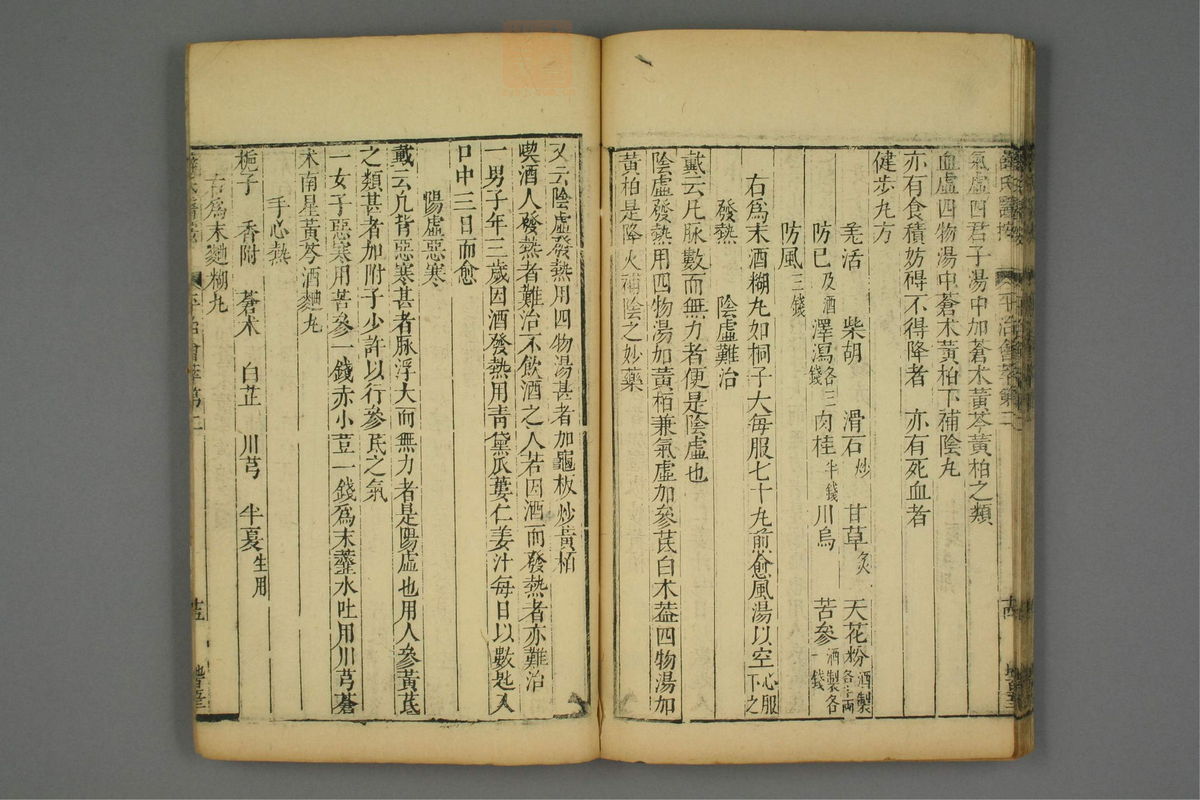 氣虛四君子湯中加蒼朮黃芩黃柏之類
血虛四物湯中蒼朮黃柏下補陰丸
亦有食積妨碍不得降者　亦有死血者
健步丸方
羌活　柴胡　滑石炒　甘草炙　天花粉酒製各半兩
防巳及酒　澤瀉各三錢　肉桂半錢　川烏　苦參酒製各一錢
防風三錢
右爲末酒糊丸如桐子大每服七十丸煎愈風湯以空心服下之
發熱　陰虛難治
戴云凡脉數而無力者便是陰虛也
陰虛發熱用四物湯加黃栢兼氣虛加參芪白朮葢四物湯加
黃柏是降火補陰之妙藥
又云陰虛發熱用四物湯甚者加龜板炒黃栢
喫酒人發熱者難治不飲酒之人若因酒而發熱者亦難治
一男子年三歲因酒發熱用靑黛瓜蔞仁姜汁每日以數匙入
口中三日而愈
陽虛惡寒
戴云凡背惡寒甚者脉浮大而無力者是陽虛也用人參黃芪
之類甚者加附子少許以行參芪之氣
一女子惡寒用苦參一錢赤小荳一錢爲末虀水吐用川芎蒼
朮南星黃芩酒麯丸
手心熱
梔子　香附　蒼朮　白芷　川芎　半夏生用
右爲末麯糊丸